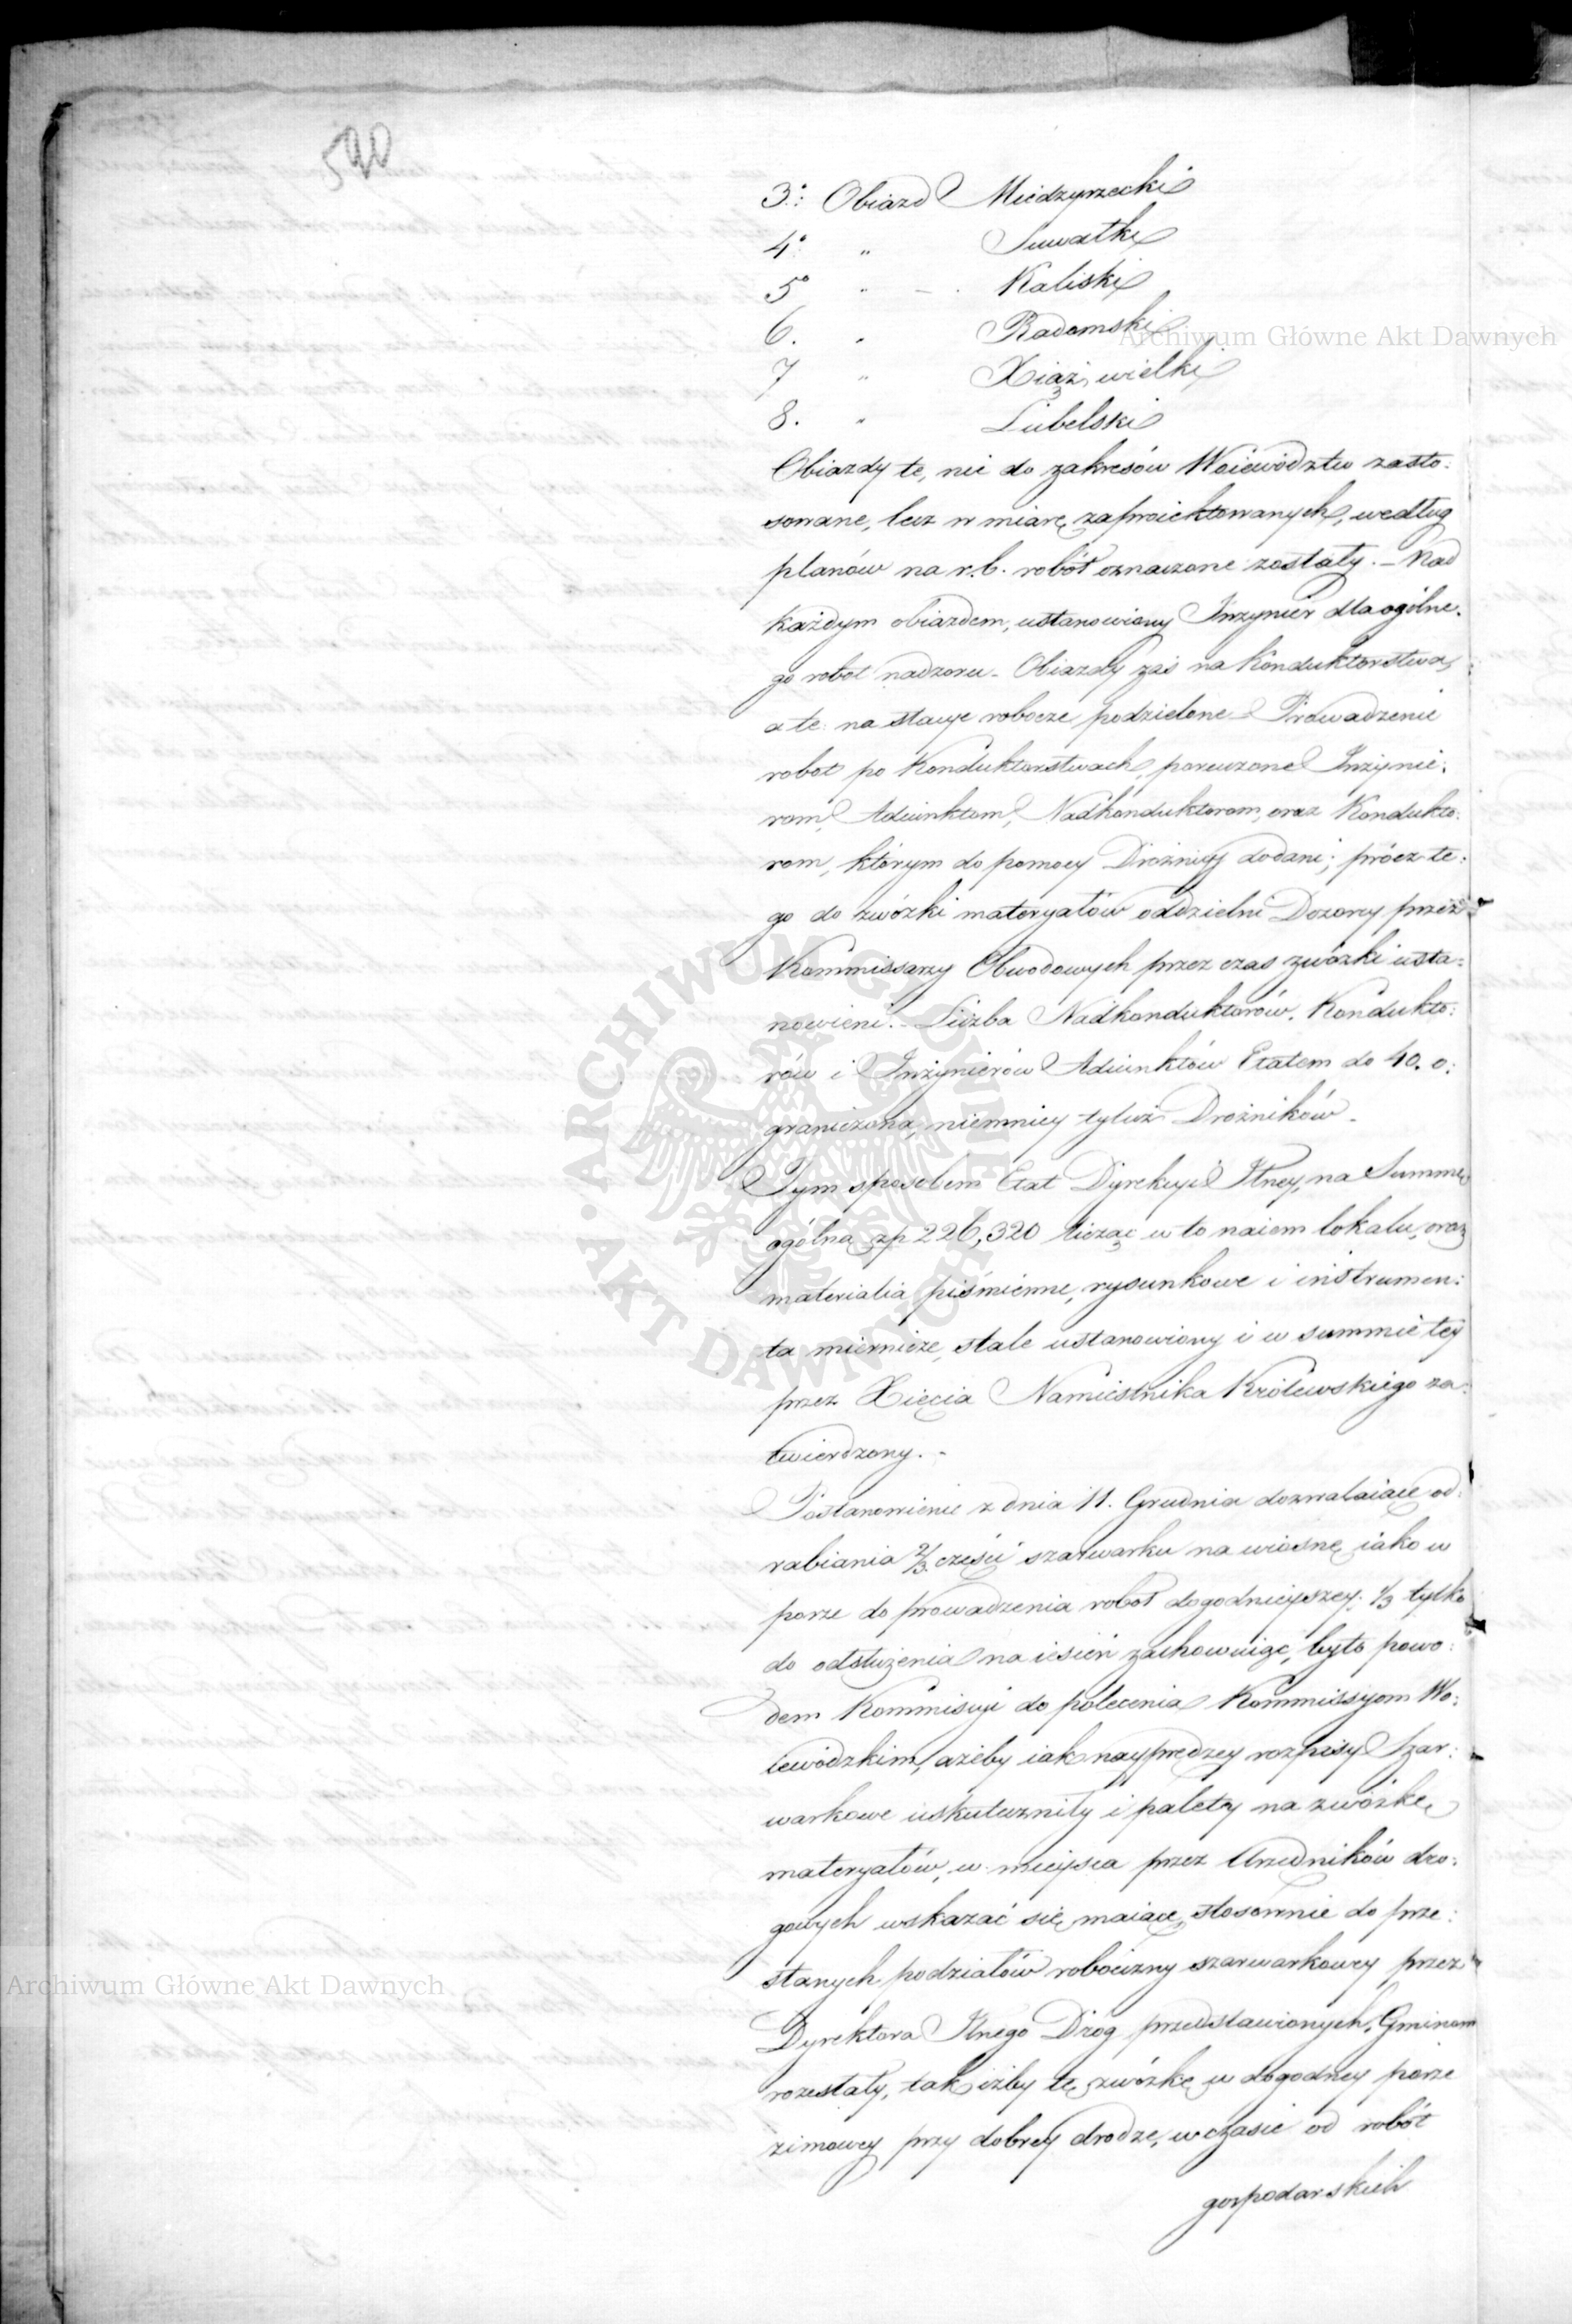 540
3.: Obiazd Miedzyrzecki
4° " Suwałki
5° " - . Kaliski
6. " Radomski
7 " Xiąż wielki
8. " Lubelski
Obiazdy te, nie do zakresów Woiewództw zasto:
sowane, lecz w miarę zaproiektowanych, według
planów na r.b. robót oznaczone zostały. - Nad
każdym obiazdem, ustanowiony Inżynier dla ogólne:
go robot nadzoru - Obiazdy zaś na Konduktorstwa,
a te na stacye robocze podzielone - Prowadzenie
robot po Konduktorstwach, poruczone Inżynie:
rom, Adiunktom, Nadkonduktorom, oraz Kondukto:
rom, którym do pomocy Drożnicy dodani; prócz te:
go do zwózki materyałów oddzielni Dozorcy przez
Kommissarzy Obwodowych przez czas zwózki usta:
nowieni. - Liczba Nadkonduktorów, Kondukto:
rów i Inżynierów Adiunktów Etatem do 40. o:
graniczona, niemniey tyluż Drożników -
Tym sposobem Etat Dyrekcyi Jlney, na Summę
ogólną zp 226,320 licząc w to naiem lokalu, oraz
materialia piśmienne, rysunkowe i instrumen:
ta miernicze, stale ustanowiony i w summie tey
przez Xięcia Namiestnika Królewskiego za:
twierdzony. -
Postanowienie z dnia 11. Grudnia dozwalaiące od:
rabiania 2/3 części szarwarku na wiosnę iako w
porze do prowadzenia robot dogodnieyszey; 1/3 tylko
do odsłużenia na iesień zachowuiąc, było powo:
dem Kommissyi do polecenia Kommissyom Wo:
iewódzkim, ażeby iak nayprędzey rozpisy Szar:
warkowe uskuteczniły i palety na zwózkę
materyałów, w mieysca przez Urzędników dro:
gowych wskazać się maiące, stosownie do prze:
słanych podziałów robocizny szarwarkowey przez
Dyrektora Jlnego Dróg przedstawionych, Gminom
rozesłały, tak iżby tę zwózkę w dogodney porze
zimowey przy dobrey drodze, w czasie od robót
gospodarskich
Archiwum Główne Akt Dawnych
Archiwum Główne Akt Dawnych
ARCHIWUM GŁÓWNE · AKT DAWNYCH ·